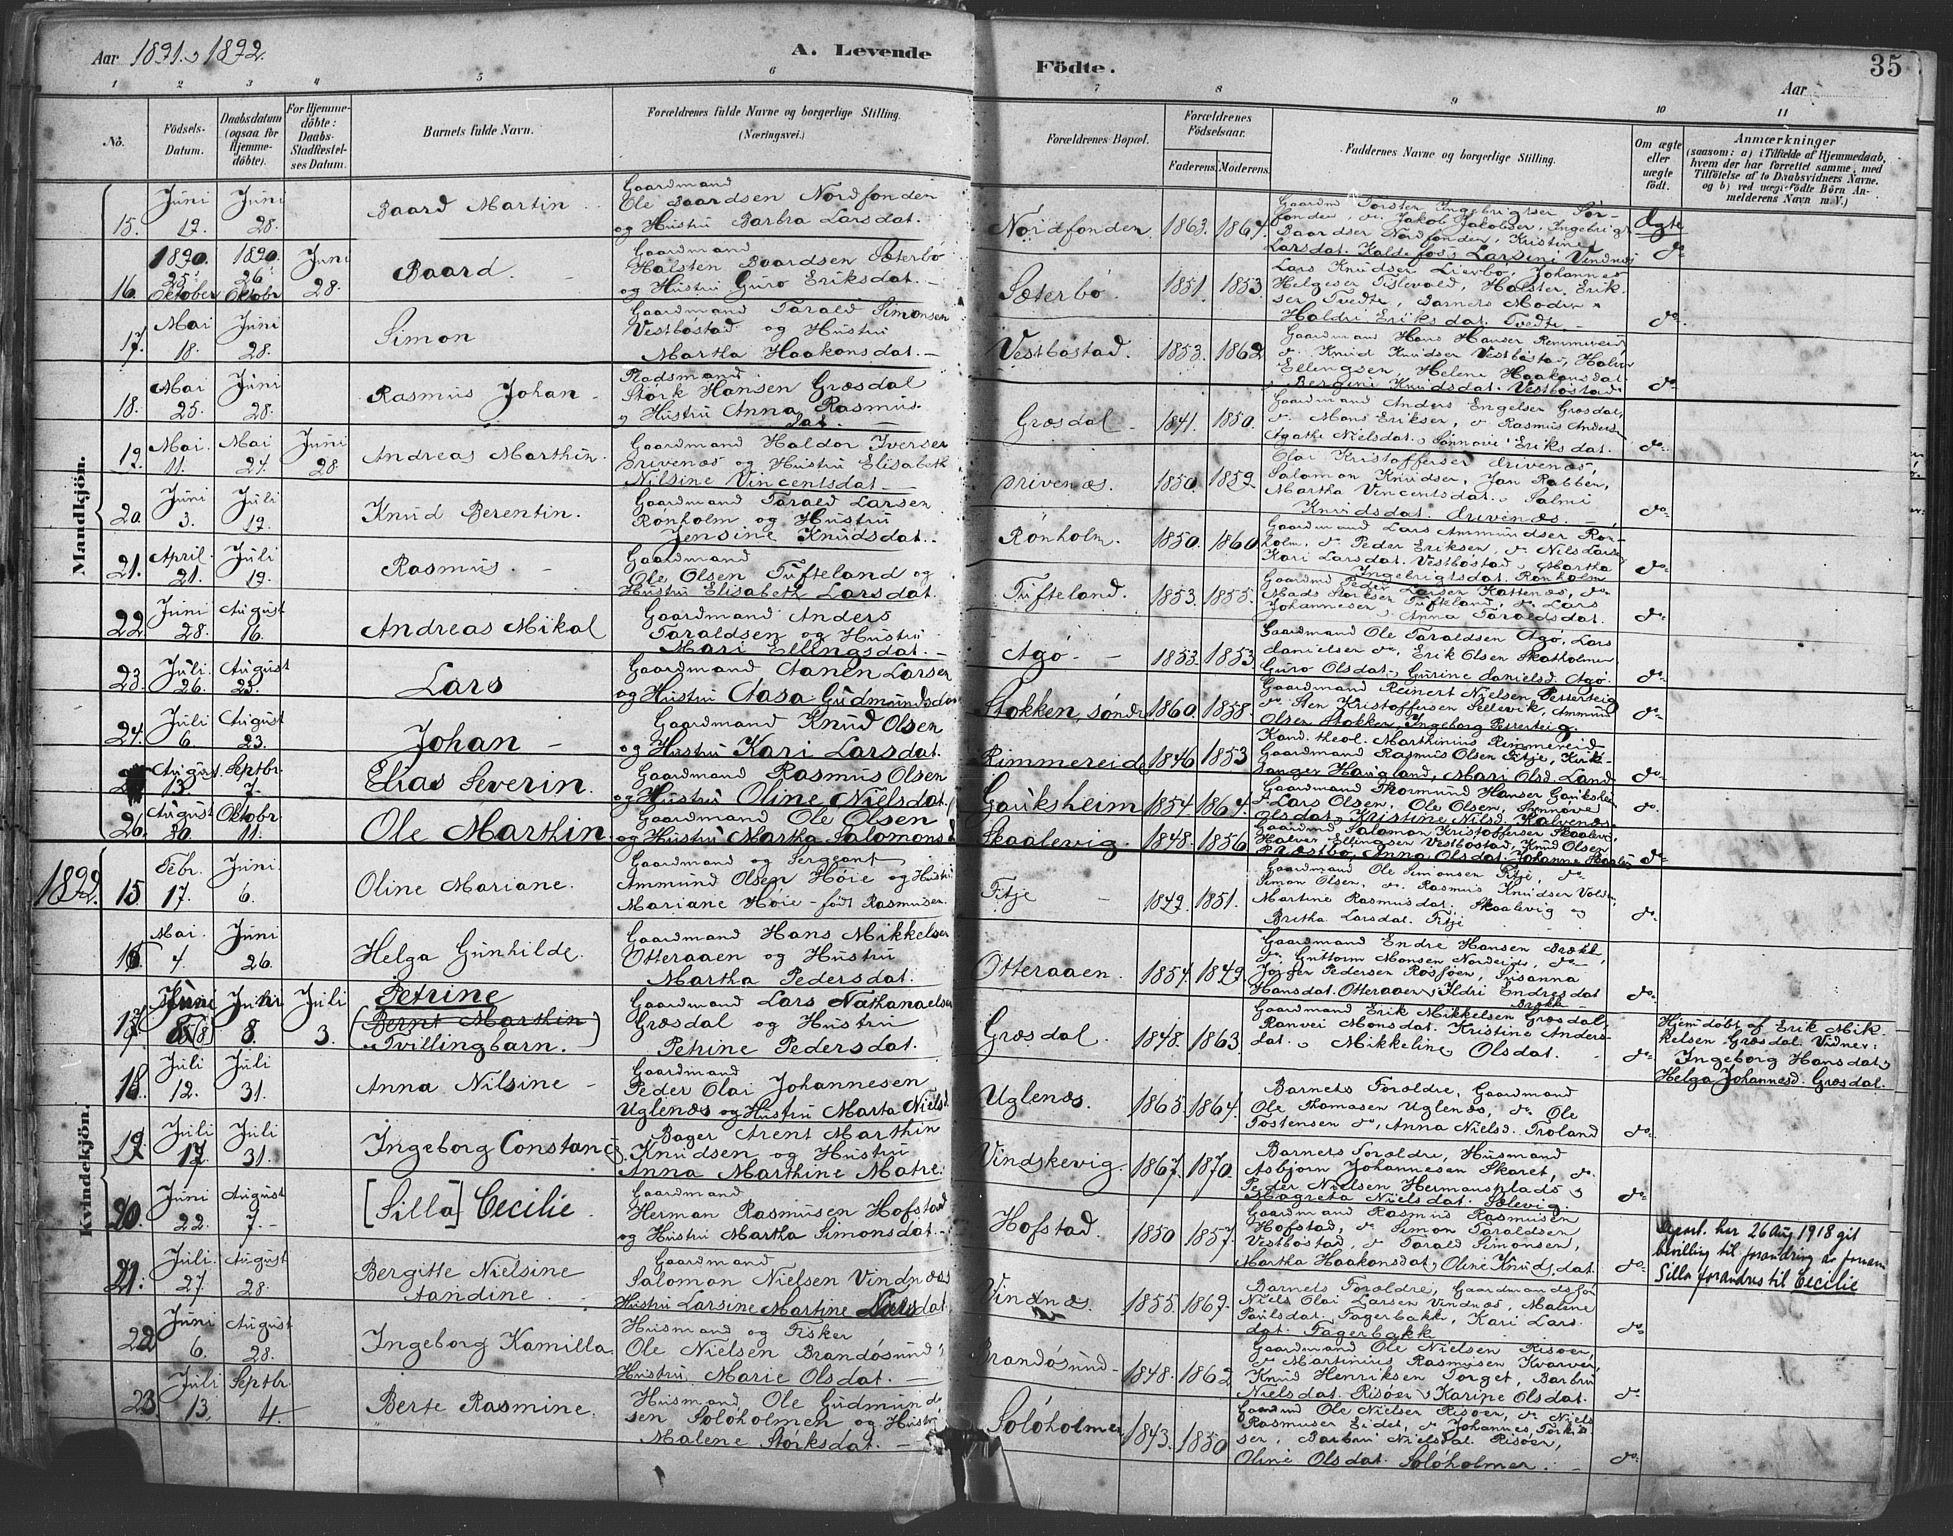 Aar 1891 & 1892.
A. Levende Födte.
35
Aar
1 2 3 4 5 6 7 8 9 10 11
No.
Födsels-Datum.
Daabsdatum (ogsaa for Hjemmedöbte).
For Hjemmedöbte: Daabs-Stadfæstelses Datum.
Barnets fulde Navn.
Forældrenes fulde Navne og borgerlige Stilling. (Næringsvei.)
Forældrenes Bopæl.
Forældrenes Födselsaar.
Faderens. Moderens.
Faddernes Navne og borgerlige Stilling.
Om ægte eller uægte födt.
Anmærkninger
(saasom: a) i Tilfælde af Hjemmedaab, hvem der har forrettet samme, med Tilföielse af to Daabsvidners Navne, og b) ved uægtefödte Börn Anmelderens Navn m. V.)
Mandkjön.
15. Juni 12. Juni 28. Baard Martin
Gaardmand
Ole Baardsen Nordfonden
og Hustru Barbra Larsdat.
Nordfonden 1863. 1864.
Ægte
16. 1890. 25 Oktober 1890. 26 Oktobr Juni 28. Baard.
Gaardmand
Halsten Baardsen Sæterbö
og Hustru Guro Eriksdat.
Sæterbö 1851. 1853
Lars Knudsen Liarbö, Johannes
Haldri Eriksdat. Tvedte
do
17. Mai 18. Juni 28. Simon
Gaardmand Tarald Simonsen
Vestböstad og Hustru
Martha Haakonsdat.
Vestböstad. 1853. 1862
Gaardmand Hans Hansen Remmereid,
do Knud Knudsen Vestböstad, Halvor
Ellingsen, Helene Haakonsdat.
Bergine Knudsdat. Vestböstad
do
18. Mai 25. Juni 28. Rasmus Johan
Pladsmand
Störk Hansen Græsdal
og Hustru Anna Rasmusdat.
Græsdal 1841. 1850.
Gaardmand Anders Engelsen Græsdal,
do Mons Eriksen, do Rasmus Anders.
Agathe Nielsdat. & Sönnove Eriksdat.
do
19. Mai 11. Mai 24. Juni 28. Andreas Marthin
Gaardmand Haldor Iversen
Drivenæs og Hustru Elisabeth
Nilsine Vincentsdat.
Drivenæs. 1850. 1859.
Olai Kristoffersen Drivenæs,
Salomon Knudsen, Jan Robber,
Martha Vincentsdat. & Salmi
Knudsdat. Drivenæs.
do
20. Juni 3. Juli 19. Knud Berentin.
Gaardmand Tarald Larsen
Rönholm og Hustru
Jensine Knudsdat.
Rönholm. 1850. 1860.
Gaardmand Lars Ammundsen Rönholm,
do Peder Eriksen, do Nils Larsen,
Kari Larsdat. Vestböstad & Martha
Ingebrigtsdat. Rönholm
do
21. April 21. Juli 19. Rasmus.
Gaardmand
Ole Olsen Tufteland og
Hustru Elisabeth Larsdat.
Tufteland. 1853. 1855.
Gaardmand Peder Larsen Kattenæs, do
Mads Störksen Tufteland, do Lars
Johannesen & Anna Taraldsdat.
do
22. Juni 28. August 16. Andreas Mikal
Gaardmand Anders
Taraldsen og Hustru
Mari Ellingsdat.
Agö 1853. 1853
Gaardmand Ole Taraldsen Agö, Lars
Danielsen do, Erik Olsen Skatholmen
Guro Olsdat., Gurine Danielsd. Agö.
do
23. Juli 26. August 23. Lars
Gaardmand Aanen Larsen
og Hustru Aasa Gudmundsdat
Stokken, söndr 1860. 1858.
Gaardmand Reinert Nielsen Petterteig
do Sten Kristoffersen Sellevik, Ammund
Olsen Stokken, Ingeborg Petterteig.
do
24. Juli 6. August 23. Johan
Gaardmand Knud Olsen
og Hustru Kari Larsdat.
Rimmereid 1846. 1853
Kand. theol. Marthinius Rimmereid
Gaardmand Rasmus Olsen Fitje, Kirksanger Haugland, Mari Olsd. Land
do
August 13. Septbr. 7. Elias Severin.
Gaardmand Rasmus Olsen
og Hustru Oline Nielsdat.
Gauksheim 1854. 1864.
Gaardmand Thormund Hansen Gauksheim
do Lars Olsen, Ole Olsen, Synnove
Olsdat. & Kristine Nilsd. Kalvenæs.
do
26. August 30. Oktobr 11. Ole Marthin.
Gaardmand Ole Olsen
og Hustru Martha Salomonsd
Skaalevig. 1848. 1856
Gaardmand Salomon Kristoffersen Skaalevi,
Halvor Ellingsen Vestböstad, Knud Olsen
Præstbö, Anna Olsdat. & Johanne Skaalevi
do
1892.
Kvindekjön.
15 Febr. 17. Juni 6. Oline Mariane.
Gaardmand og Sergeant
Ammund Olsen Höie og Hustru
Mariane Höie - födt Rasmusen
Fitje 1849. 1851.
Gaardmand Ole Simonsen Fitje, do
Simon Olsen, do Rasmus Knudsen Volden,
Martine Rasmusdat. Skaalevig &
Britha Larsdat. Fitje
do
16 Mai 4. Juni 26. Helga Gunhilde.
Gaardmand Hans Mikkelsen
Otteraaen og Hustru
Martha Pedersdat.
Otteraaen. 1854. 1849.
Gaardmand Endre Hansen Brækk,
do Guttorm Monsen Nordeide, do
Jörger Pedersen Rosföen, Susanna
Hansdat. Otteraaen, Ildri Endresdat
Brækk
do
17 Juni 8. Juli 3. Petrine
(Bernt Marthin
Tvillingbarn.)
Gaardmand Lars Nathanaelsen
Græsdal og Hustru
Petrine Pedersdat.
Græsdal. 1848. 1863.
Gaardmand Erik Mikkelsen Græsdal,
Ranvei Monsdat. Kristine Andersdat. & Mikkeline Olsdat.
do
Hjemdöbt af Erik Mikkelsen Græsdal. Vidner:
Ingeborg Hansdat &
Helga Johannesd. Græsdal.
18 Juli 12. Juli 31. Anna Nilsine
Gaardmand
Peder Olai Johannesen
Uglenæs og Hustru Marta Nielsd.
Uglenæs. 1865. 1864.
Barnets Forældre, Gaardmand
Ole Thomasen Uglenæs, do Ole
Tostensen do, Anna Nielsd. Troland
do
19. Juli 17. Juli 31. Ingeborg Constance
Bager Arent Marthin
Knudsen og Hustru
Anna Marthine Matre.
Vindskevig. 1867. 1870.
Barnets Forældre, Husmand
Asbjörn Johannesen Skaret, do
Peder Nielsen Hermansplads &
Magreta Nielsdat. Selevig.
do
20. Juni 22. August 7. [Silla] Cecilie
Gaardmand
Herman Rasmusen Hofstad
og Hustru Martha Simonsdat.
Hofstad. 1850 1857.
Gaardmand Rasmus Rasmusen
Hofstad, do Simon Taraldsen
Vestböstad, do Tarald Simonsen,
Martha Haakonsdat, Oline Knudsdat.
do
26 Aug 1918 git
bevilling til forandring av fornavn
Silla forandres til Cecilie
21. Juli 27. August 28. Bergitte Nielsine
Tandine.
Gaardmand
Salomon Nielsen Vindnæs
Hustru Larsine Martine Larsdat
Vindnæs. 1855. 1869.
Barnets Forældre, Gaardmandsfon
Niels Olai Larsen Vindnæs, Malene
Poulsdat. Fagerbakk, Kari Larsdat. Fagerbakk
do
22 Juni 6. August 28. Ingeborg Kamilla.
Husmand og Fisker
Ole Nielsen Brandösund,
Hustru Marie Olsdat.
Brandösund 1848. 1862
Gaardmand Ole Nielsen Risöen,
do Martinius Rasmusen Kvarven,
Knud Henriksen Torget, Barbru
Nielsdat. Risöen & Karine Olsdat.
do
23. Juli 13. Septbr. 4. Berte Rasmine.
Husmand, Ole Gudmundsen Solöholmen og Hustru
Malene Störksdat.
Solöholmen 1843. 1850
Gaardmand Ole Nielsen Risöen, do Niels
Rasmusen Eidet, do Johannes Törkilsen, Barbru Nielsdat. Risöen,
Oline Olsdat. Solöholmen.
do